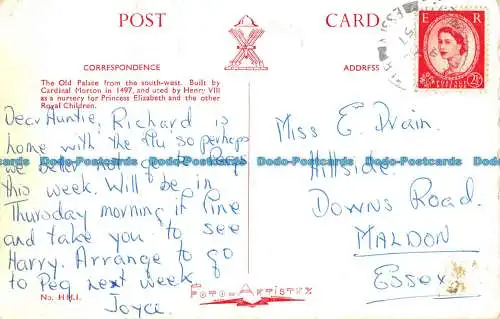 POST CARD
CORRESPONDENCE
ADDRESS
The Old Palace from the south-west. Built by
Cardinal Morton in 1497, and used by Henry VIII
as a nursery for Princess Elizabeth and the other
Royal Children.
Dear Auntie, Richard is
home with the flu so perhaps
we better not go to Pegs
this week. Will be in
Thursday morning if fine
and take you to see
Harry. Arrange to go
to Peg next week
Joyce.
No. H.H.1.
Foto-Artistry
E R
2½D
Miss E. Drain.
Hillside.
Downs Road.
MALDON
Essex
Dodo-Postcards Dodo-Postcards Dodo-Postcards Dodo-Postcards
Dodo-Postcards Dodo-Postcards Dodo-Postcards Dodo-Postcards